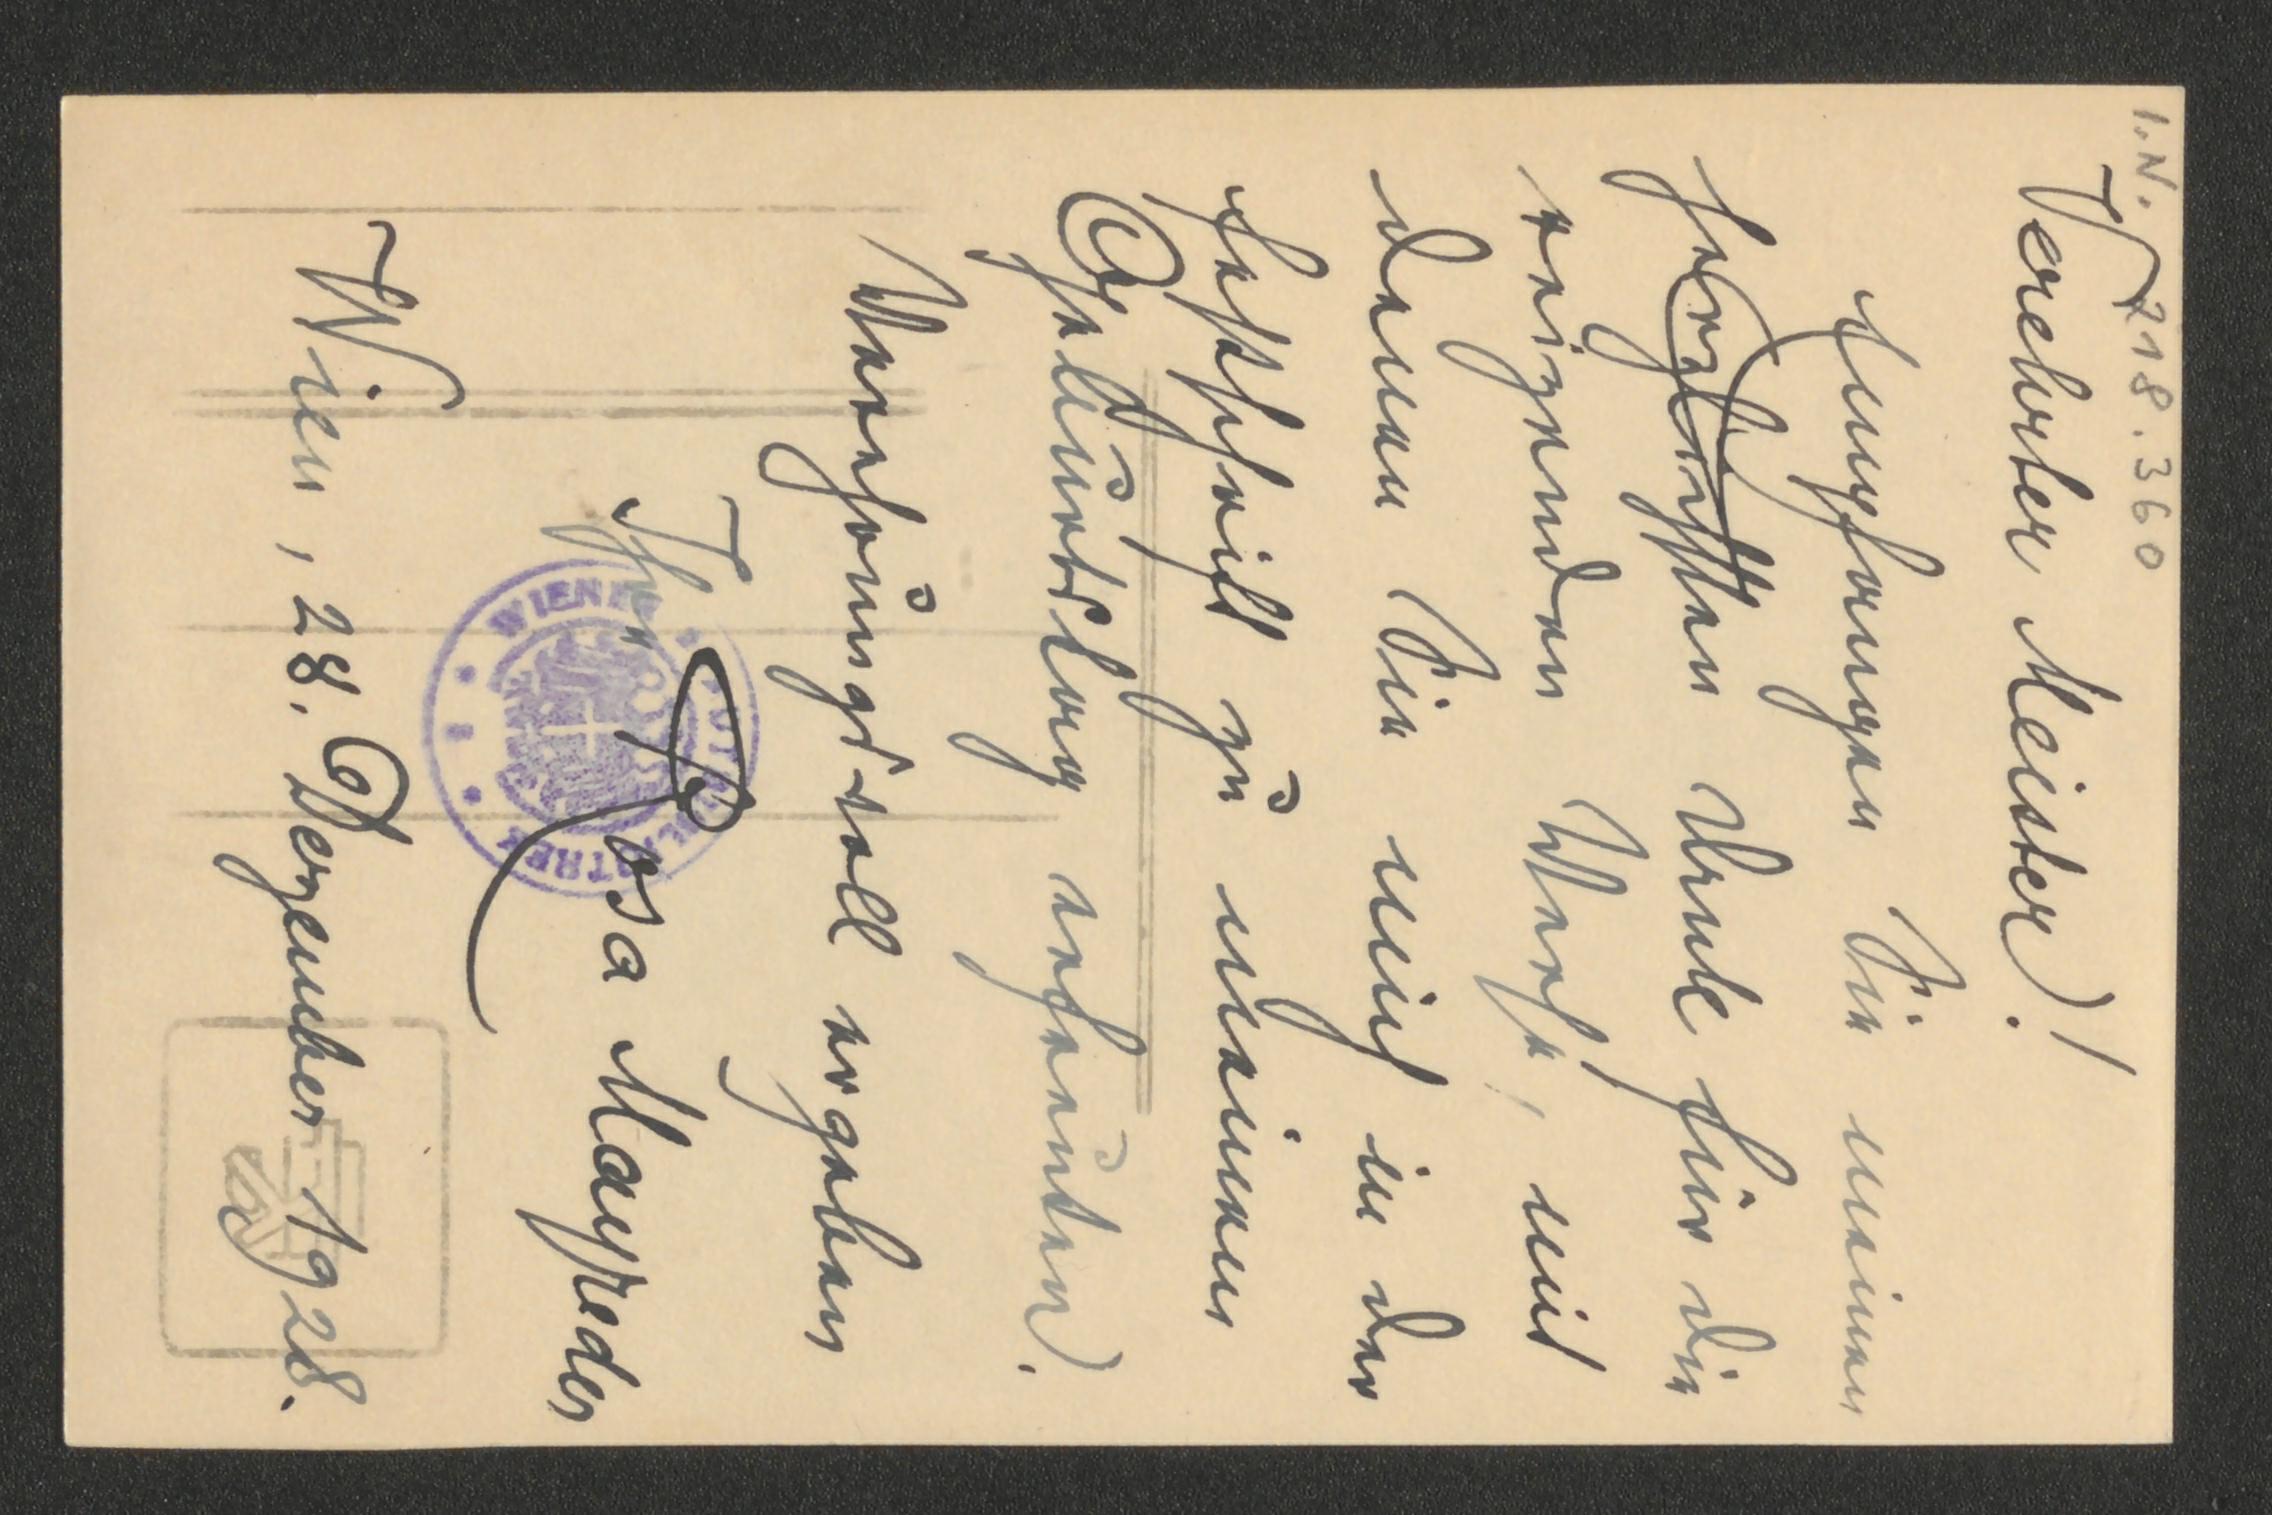 I.N. 218.360
Verehrter Meister!
Empfangen Sie meinen
herzlichsten Dank für die
reizenden Verse, mit
denen Sie mich in der
Festschrift zu meinem
Geburtstag erfreuten.
Verehrungsvoll ergeben
Ihre Rosa Mayreder
Wien, 28. Dezember 1928.
WIENER